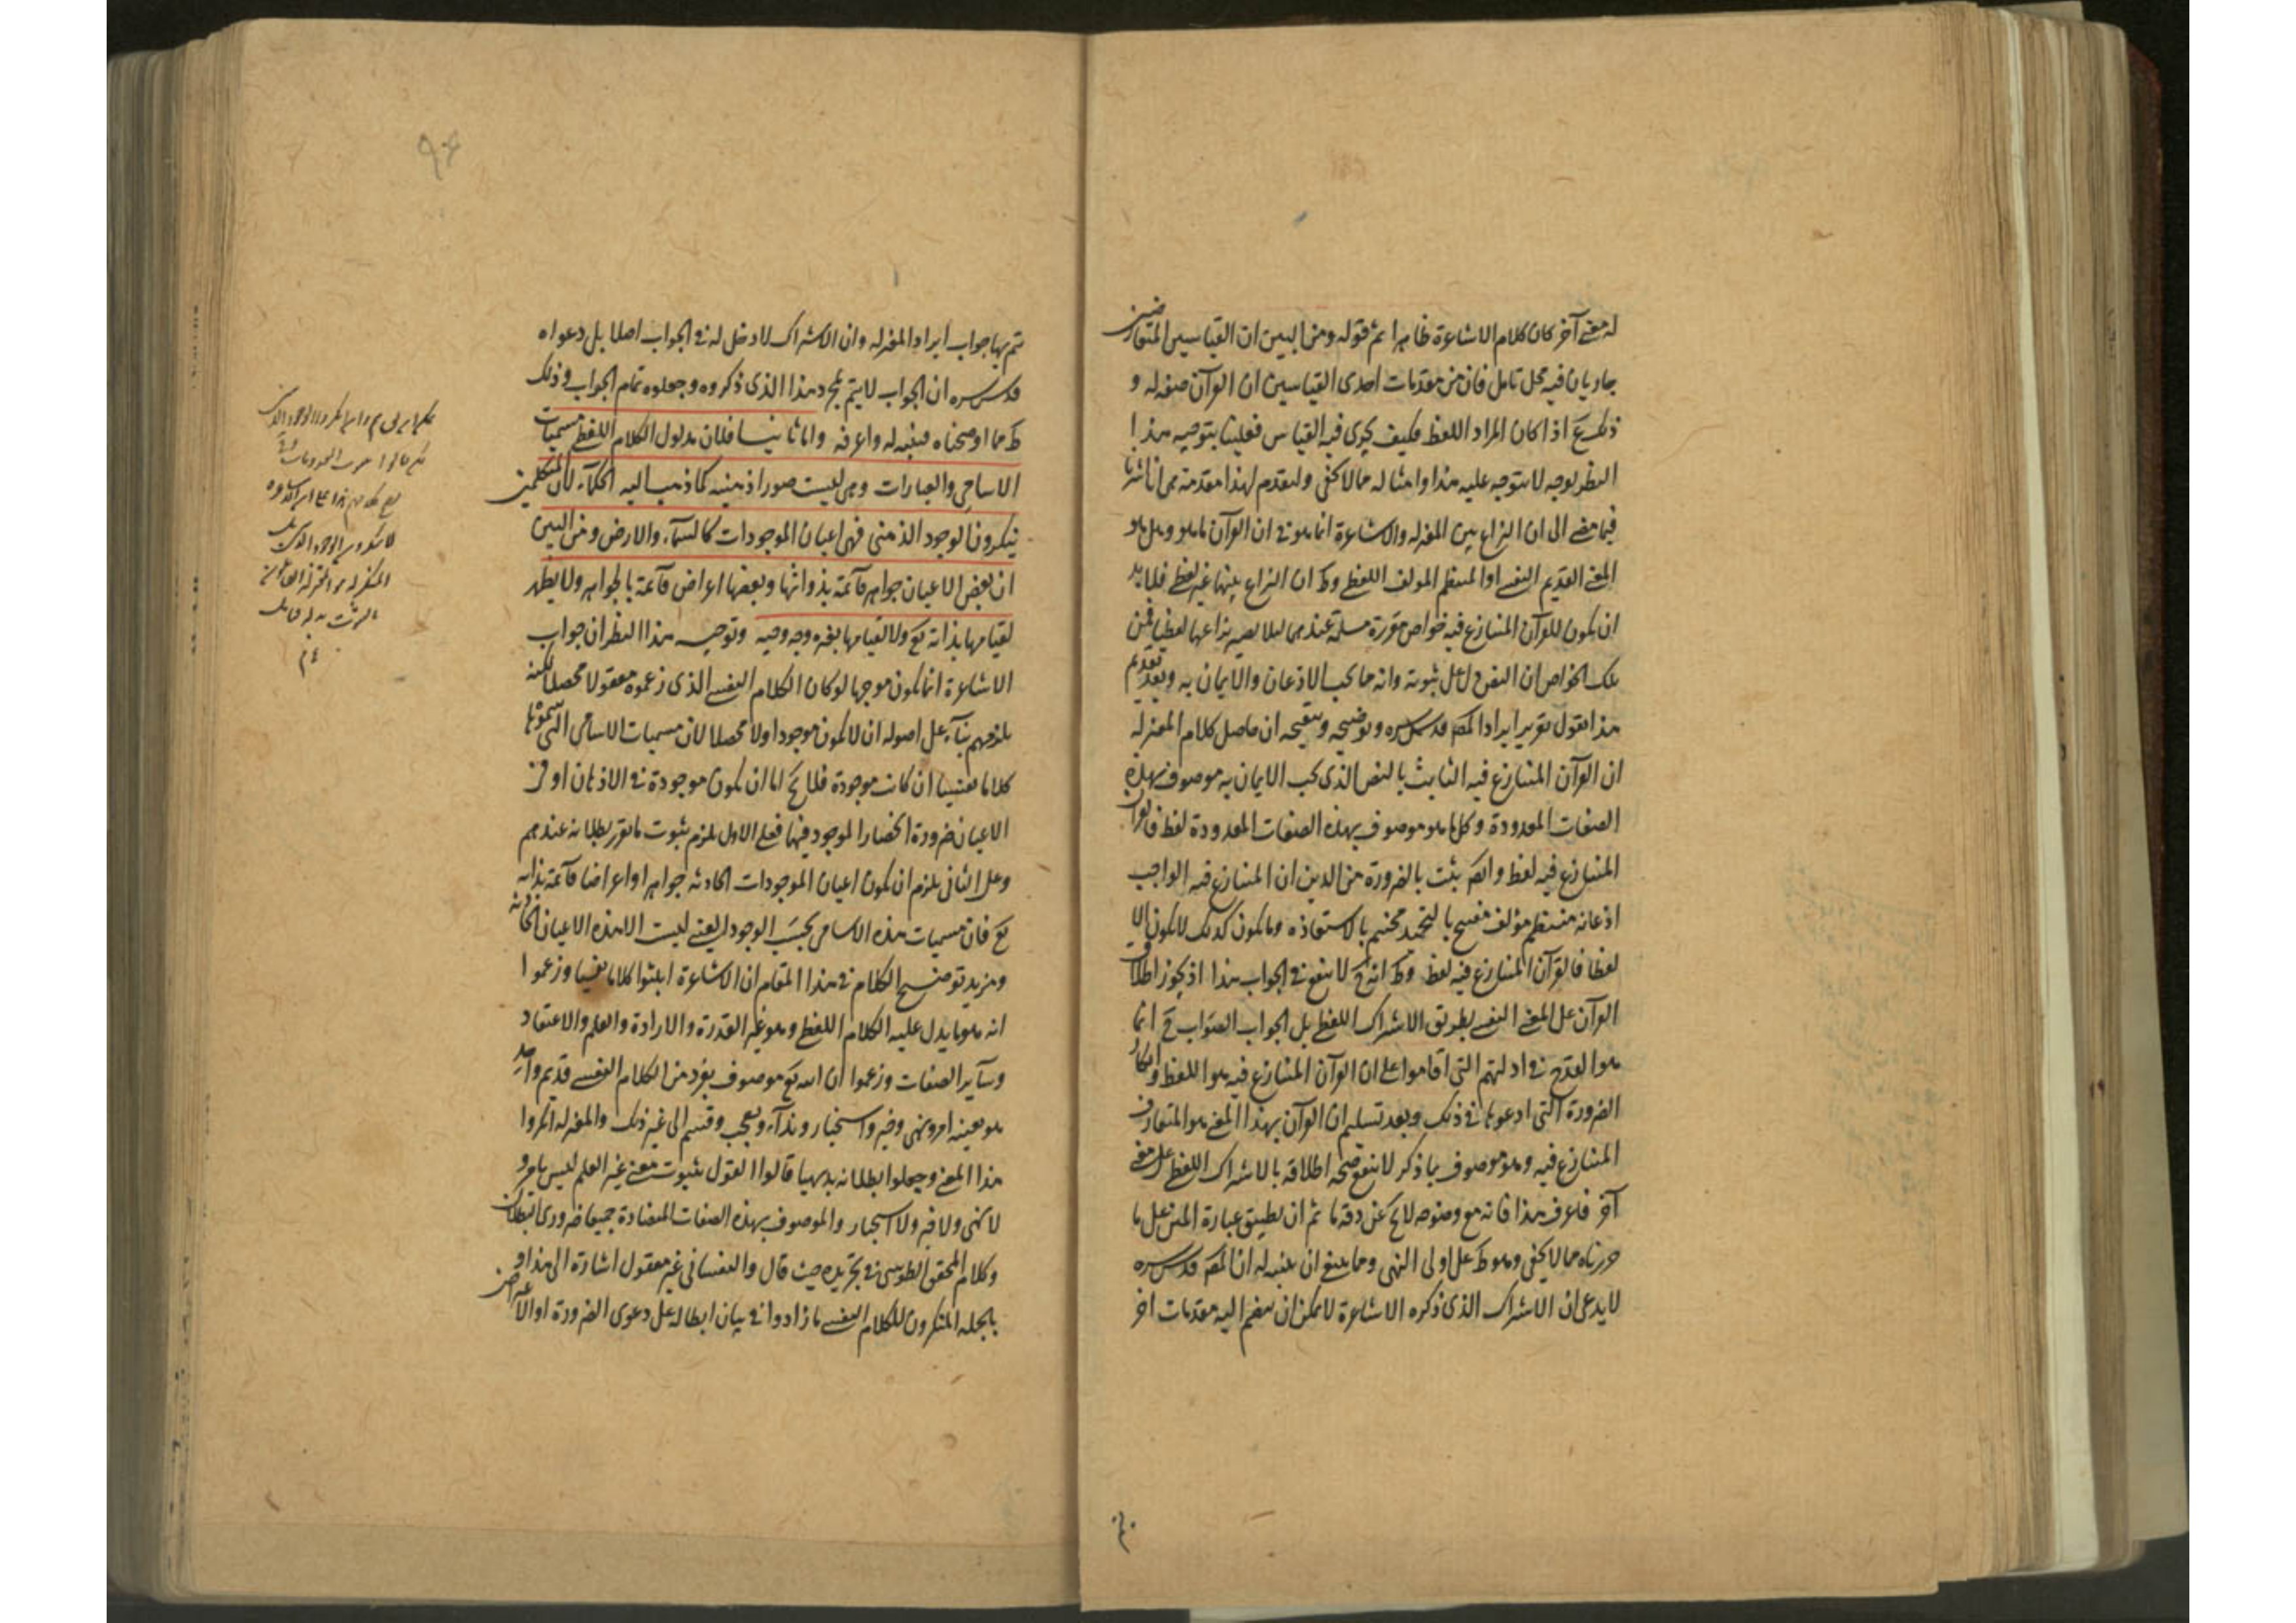 له معنے آخر كان كلام الاشاعرة ظاهرا ثم قوله ومن البين ان القياسين المتعارضين
جاريان فيه محل تامل فان من مقدمات احدى القياسين ان القرآن صفة له و
ذلك مع اذا كان المراد اللفظ فكيف يجرى فيه القياس فعلينا بتوجيه هذا
النظر بوجه لا يتوجه عليه هذا وامثاله مما لا يخفى ولنقدم لهذا مقدمة هى انا اشرنا
فيما مضے الى ان النزاع بين المعتزلة والاشاعرة انما هو فى ان القرآن ما هو وهل هو
المعنے القديم النفسے او المنتظم المولف اللفظے وظ ان النزاع بينها غير لفظے فلا بد
ان يكون للقرآن المتنازع فيه خواص مقررة مسلمة عندهما لئلا يصير نزاعها لفظيا فمن
تلك الخواص ان النص دل على ثبوته وانه مما يجب الاذعان والايمان به وبعد تقديم
هذا نقول تقرير ايراد المصـ قدس سره وتوضيحه وتنقيحه ان حاصل كلام المعتزلة
ان القرآن المتنازع فيه الثابت بالنص الذى يجب الايمان به موصوف بهذه
الصفات المعدودة وكل ما هو موصوف بهذه الصفات المعدودة لفظ فالقرآن
المتنازع فيه لفظ وايضا ثبت بالضرورة من الدين ان المتنازع فيه الواجب
اذعانه منتظم مؤلف مفتتح بالتحميد مختتم بالاستعاذه وما يكون كذلك لا يكون الا
لفظا فالقرآن المتنازع فيه لفظ وظ انه ح لا ينفع فى الجواب هذا اذ يجوز اطلاق
القرآن على المعنے النفسے بطريق الاشتراك اللفظے بل الجواب الصواب ح انما
هو القدح فى ادلتهم التى اقاموا على ان القرآن المتنازع فيه هو اللفظ وانكار
الضرورة التى ادعوها فى ذلك وبعد تسليم ان القرآن بهذا المعنے هو المتعارف
المتنازع فيه وهو موصوف بما ذكر لا ينفع صحة اطلاقه بالاشتراك اللفظے على معنے
آخر فاعرف هذا فانه مع وضوحه لا يخ عن دقة ما ثم ان تطبيق عبارة المتن على ما
حررناه مما لا يخفى وهو ظ على اولى النهى ومما ينبغے ان يتنبه له ان المصـ قدس سره
لا يدعى ان الاشتراك الذى ذكره الاشاعرة لا يمكن ان ينضم اليه مقدمات اخر
يتم بها جواب ايراد المعتزلة وان الاشتراك لا دخل له فى الجواب اصلا بل دعواه
قدس سره ان الجواب لا يتم بمجرد هذا الذى ذكروه وجعلوه تمام الجواب وذلك
ظ مما اوضحناه فتنبه له واعرفه واما ثانيا فلان مدلول الكلام اللفظے مسميات
الاسامى والعبارات وهى ليست صورا ذهنية كما ذهب اليه الحكماء لان المتكلمين
ينكرون الوجود الذهنى فهى اعيان الموجودات كالسماء والارض ومن البين
ان بعض الاعيان جواهر قائمة بذواتها وبعضها اعراض قائمة بالجواهر ولا يظهر
لقيامها بذاته تع ولا لقيامها بغيره وجه وجيه وتوجيه هذا النظر ان جواب
الاشاعرة انما يكون موجها لو كان الكلام النفسے الذى زعموه معقولا محصلا لكنه
يلزمهم بناء على اصوله ان لا يكون موجودا ولا محصلا لان مسميات الاسامى التى سموها
كلاما نفسيا ان كانت موجودة فلا يخ اما ان يكون موجودة فى الاذهان او فى
الاعيان ضرورة انحصار الموجود فيها فعلے الاول يلزم ثبوت ما تقرر بطلانه عندهم
وعلى الثانى يلزم ان يكون اعيان الموجودات الحادثة جواهرا واعراضا قائمة بذاته
تع فان مسميات هذه الاسامى بحسب الوجود العينے ليست الا هذه الاعيان الحادثة
ومزيد توضيح الكلام فى هذا المقام ان الاشاعرة اثبتوا كلاما نفسيا وزعموا
انه هو ما يدل عليه الكلام اللفظے وهو غير القدرة والارادة والعلم والاعتقاد
وسآير الصفات وزعموا ان الله تع موصوف بفرد من الكلام النفسے قديم واحد
هو بعينه امر ونهى وخبر واستخبار ونداء وتعجب وقسم الى غير ذلك والمعتزلة انكروا
هذا المعنے وجعلوا بطلانه بديهيا قالوا القول بثبوت معنے غير العلم ليس بامر و
لا نهى ولا خبر ولا استخبار والموصوف بهذه الصفات المتضادة جميعا ضرورى البطلان
وكلام المحقق الطوسى فى تجريده حيث قال والنفسانى غير معقول اشارة الى هذا و
بالجملة المنكرون للكلام النفسے ما زادوا فى بيان ابطاله على دعوى الضرورة او الاعراض